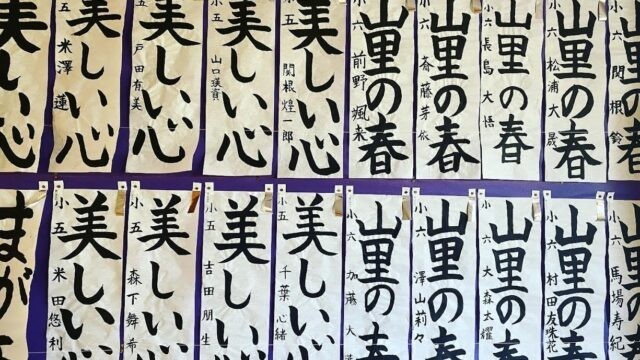 小六 関根鈴
山里の春
小六 松浦大晟
山里の春
小六 長島大悟
山里の春
小六 斎藤芽依
山里の春
小六 前野颯来
美しい心
小五 関根煌一郎
美しい心
小五 山口瑛資
美しい心
小五 戸田有美
美しい心
小五 米澤蓮
しい心
小六 馬場寿紀
山里の
小六 村田友珠花
山里の
小六 大森太耀
山里の
小六 澤山莉々
山里の
小六 加藤大
美しい
小五 千葉心緒
美しい
小五 吉田朋生
美しい
小五 森下舞希
美しい
小五 米田悠利
まが